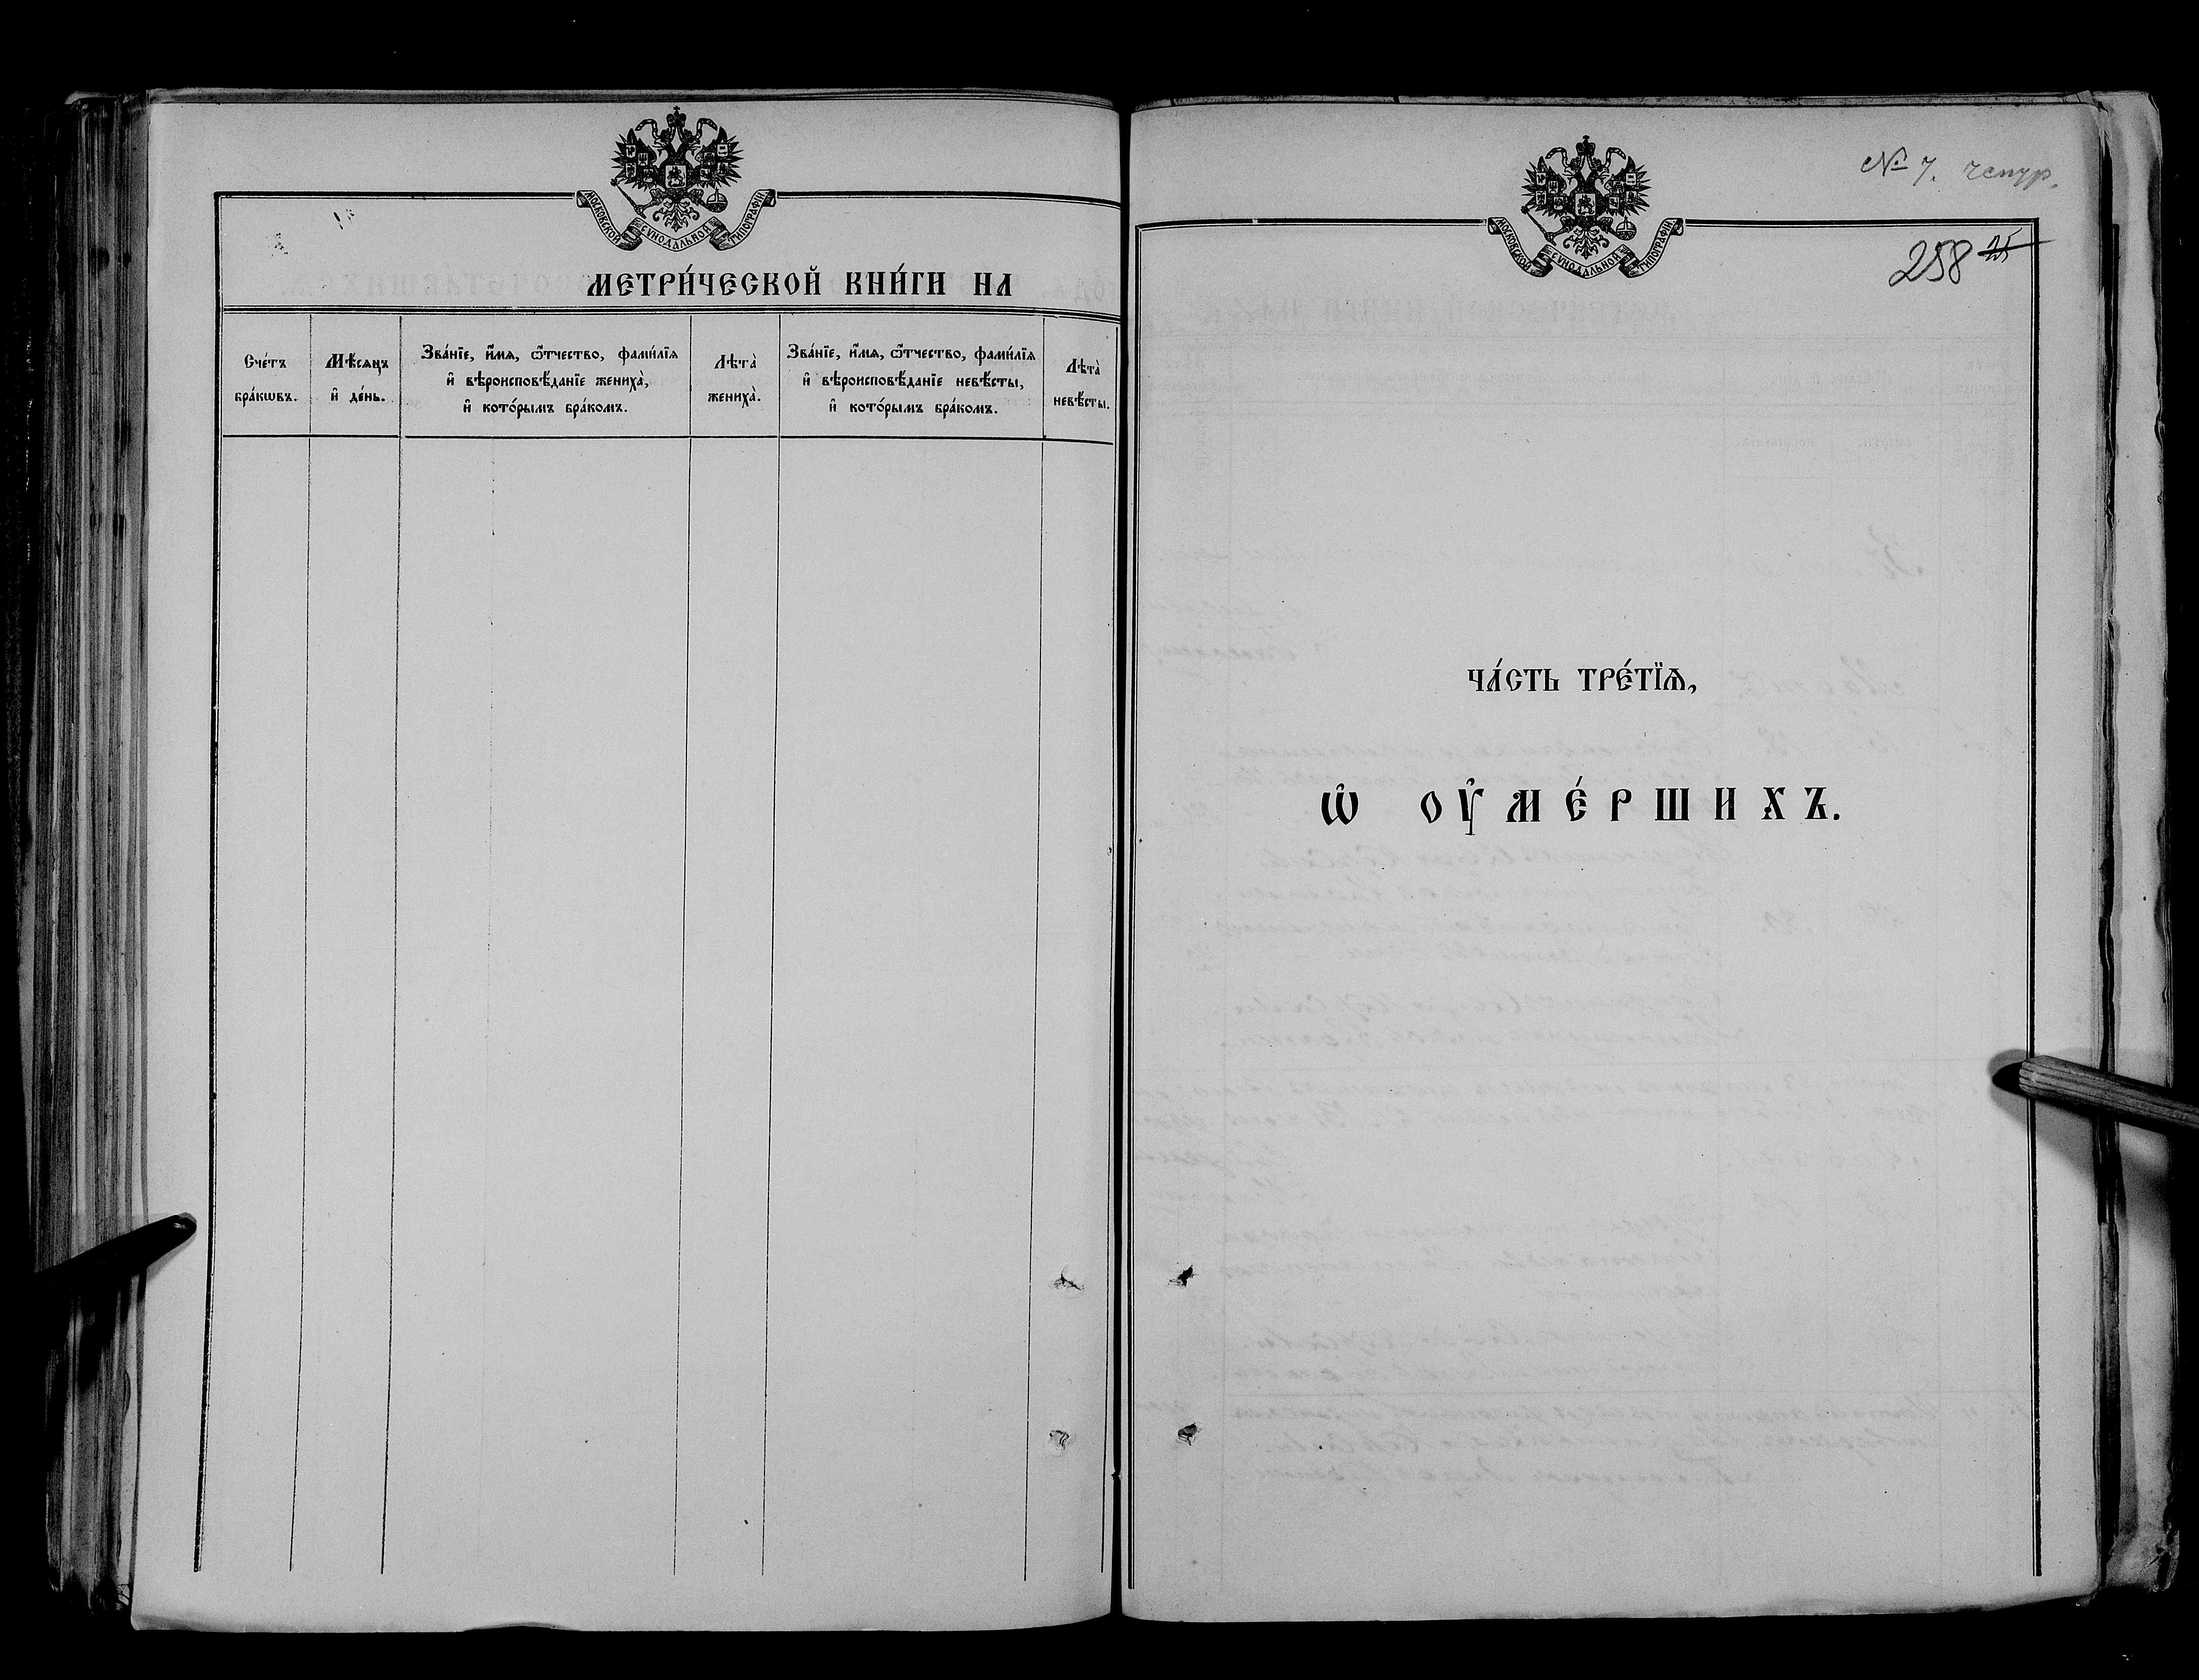 МОСКОВСКОЙ СѴНОДАЛЬНОЙ ТИПОГРАФІИ
МЕТРИ́ЧЕСКОЙ КНИ́ГИ НА
Сче́тъ
бра́кѡвъ.
Мѣ́сяцъ
и҆ де́нь.
Зва́нїе, и҆́мя, ѻ҆́тчество, фами́лїя
и҆ вѣроисповѣ́данїе жениха̀,
и҆ кото́рымъ бра́комъ.
Лѣта̀
жениха̀.
Зва́нїе, и҆́мя, ѻ҆́тчество, фами́лїя
и҆ вѣроисповѣ́данїе невѣ́сты,
и҆ кото́рымъ бра́комъ.
Лѣта̀
невѣ́сты.
№ 7. чепур.
МОСКОВСКОЙ СѴНОДАЛЬНОЙ ТИПОГРАФІИ
258
ЧА́СТЬ ТРЕ́ТЇѦ,
Ѡ҆ ОУ҆МЕ́РШИХЪ.